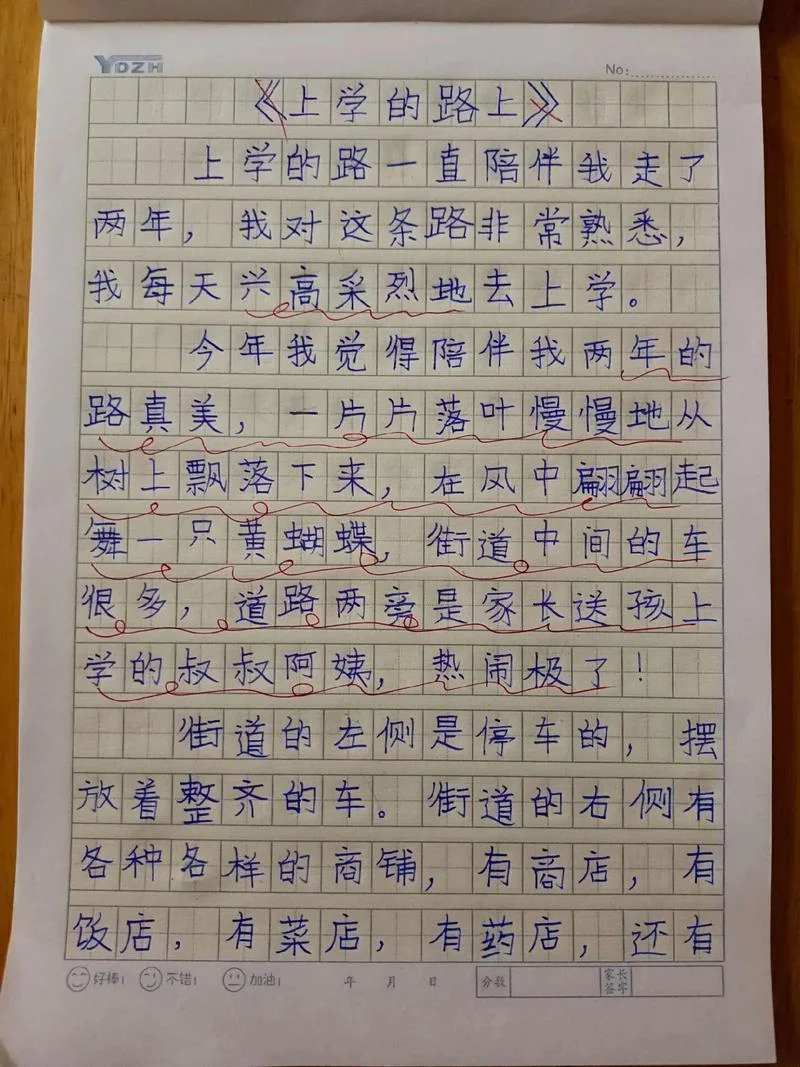 YDZH
No:
《上学的路上》
上学的路一直陪伴我走了
两年，我对这条路非常熟悉，
我每天兴高采烈地去上学。
今年我觉得陪伴我两年的
路真美，一片片落叶慢慢地从
树上飘落下来，在风中翩翩起
舞一只黄蝴蝶，街道中间的车
很多，道路两旁是家长送孩上
学的叔叔阿姨，热闹极了！
街道的左侧是停车的，摆
放着整齐的车。街道的右侧有
各种各样的商铺，有商店，有
饭店，有菜店，有药店，还有
好棒！ 不错！ 加油！ 年 月 日 分数 家长签字